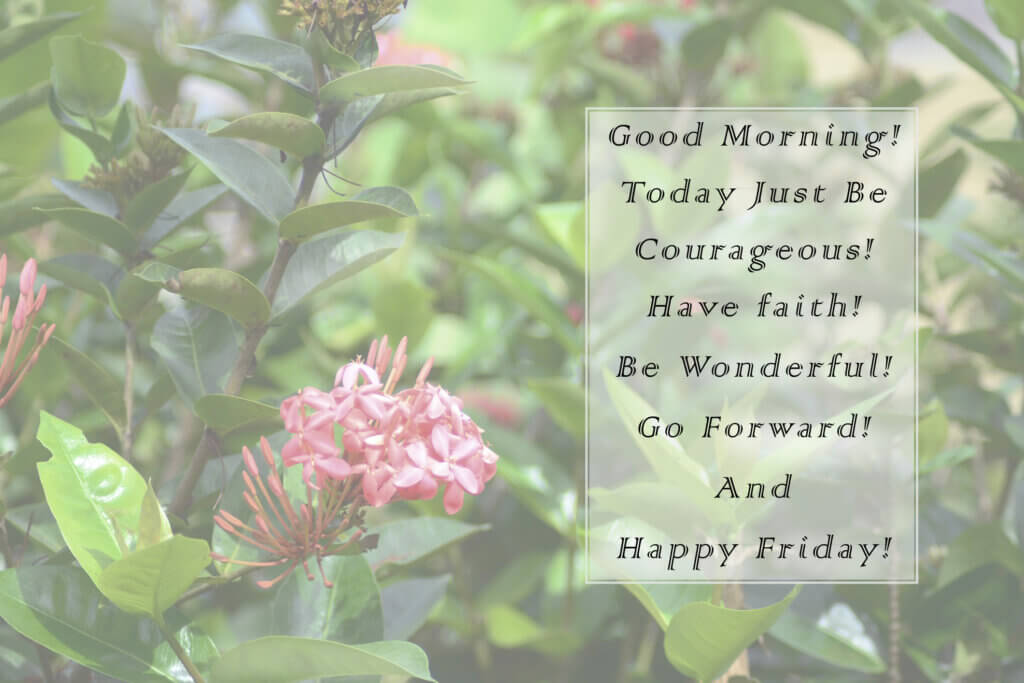 Good Morning!
Today Just Be
Courageous!
Have faith!
Be Wonderful!
Go Forward!
And
Happy Friday!